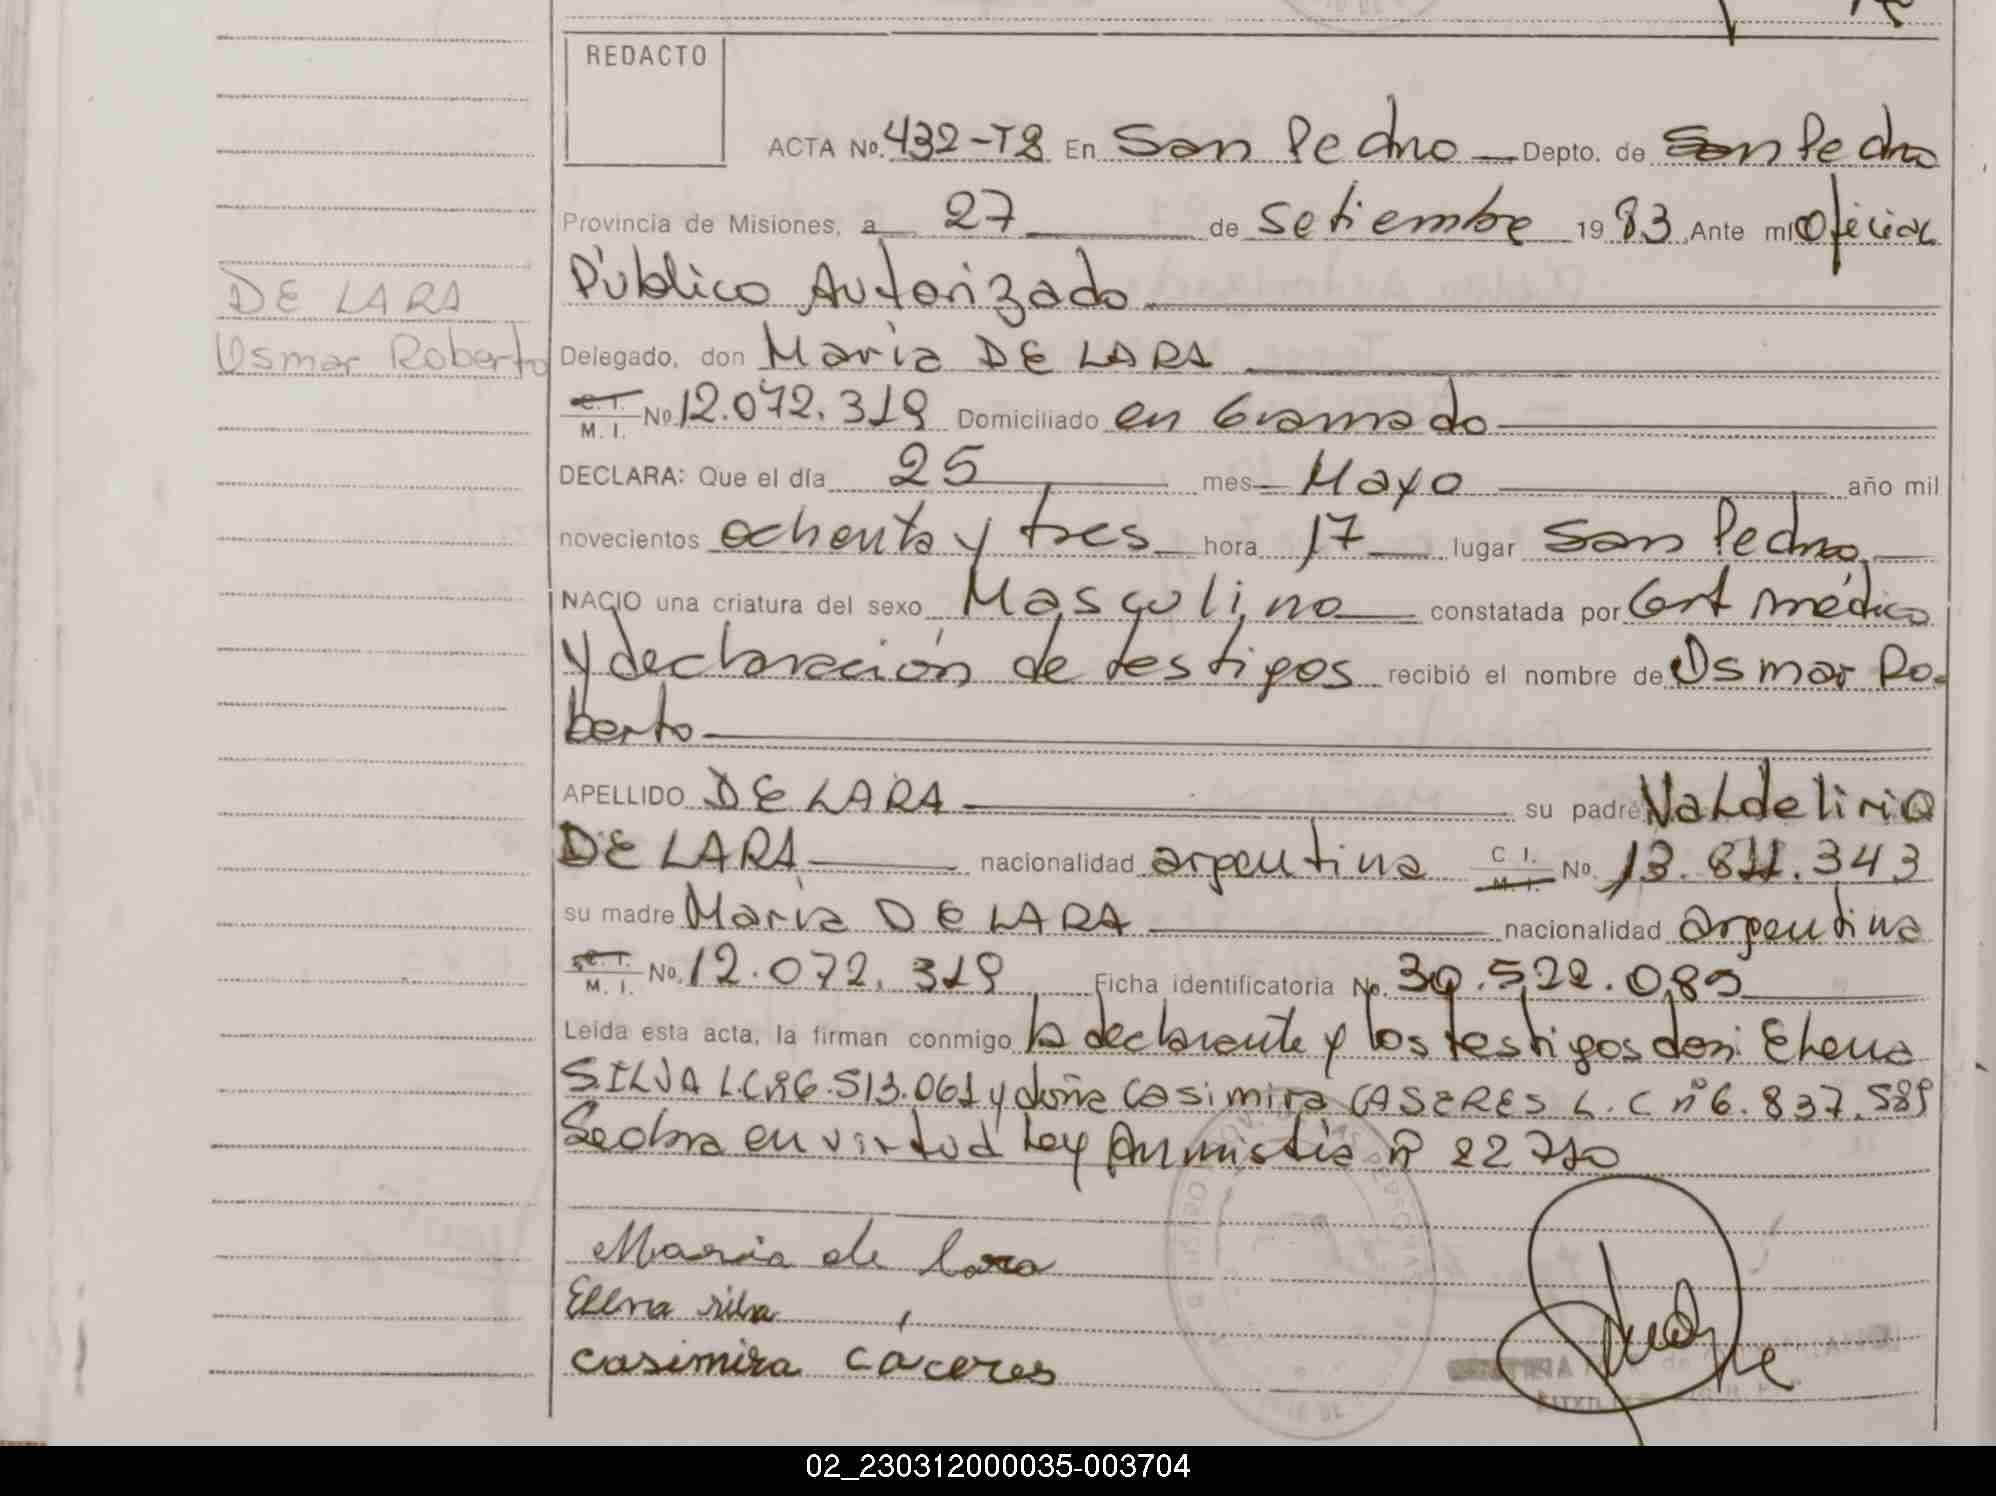 REDACTO
ACTA No. 432-T8 En San Pedro Depto. de San Pedro
Provincia de Misiones, a 27 de Setiembre 1983 Ante mi Oficial
Público Autorizado
DE LARA
Osmar Roberto
Delegado, don Maria DE LARA
C. I. M. I. No. 12.072.319 Domiciliado en Gramado
DECLARA: Que el día 25 mes Mayo año mil
novecientos ochenta y tres hora 17 lugar San Pedro
NACIO una criatura del sexo Masculino constatada por Cert médico
y declaración de testigos recibió el nombre de Osmar Ro-
berto
APELLIDO DE LARA su padre Valdelirio
DE LARA nacionalidad argentina C I. M. I. No. 13.811.343
su madre Maria DE LARA nacionalidad argentina
C. I. M. I. No. 12.072.319 Ficha identificatoria No. 30.522.089
Leida esta acta, la firman conmigo la declarante y los testigos don: Elena
SILVA L.C nº 6.513.061 y doña Casimira CASERES L.C nº 6.837.589
Se obra en virtud Ley Ammistia nº 22710
Maria de Lara
Elena silva
casimira cáceres
02_230312000035-003704